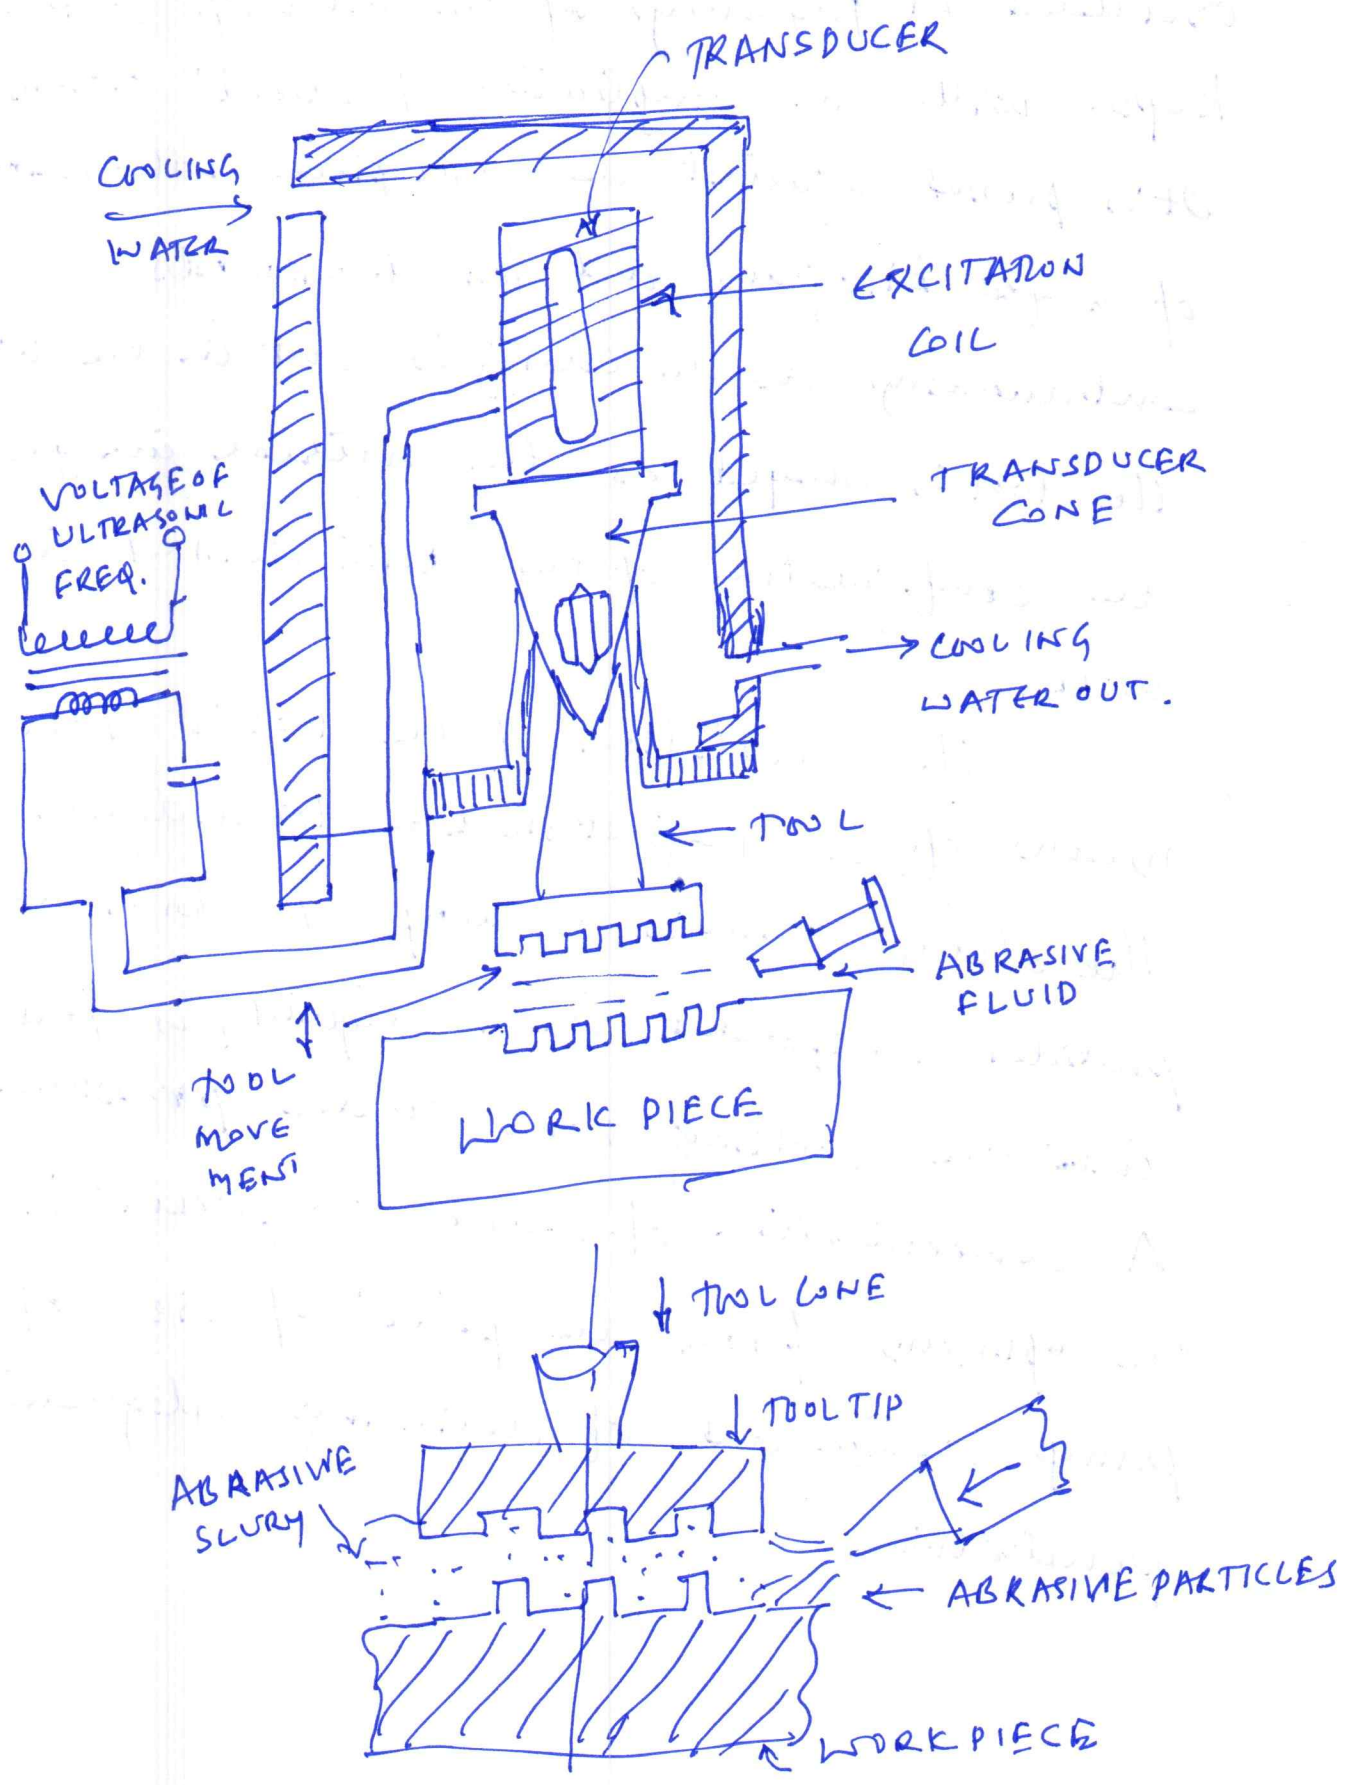 TRANSDUCER
COOLING
WATER
EXCITATION
COIL
TRANSDUCER
CONE
VOLTAGE OF
ULTRASONIC
FREQ.
COOLING
WATER OUT.
TOOL
ABRASIVE
FLUID
TOOL
MOVE
MENT
WORK PIECE
TOOL CONE
TOOL TIP
ABRASIVE
SLURY
ABRASIVE PARTICLES
WORKPIECE